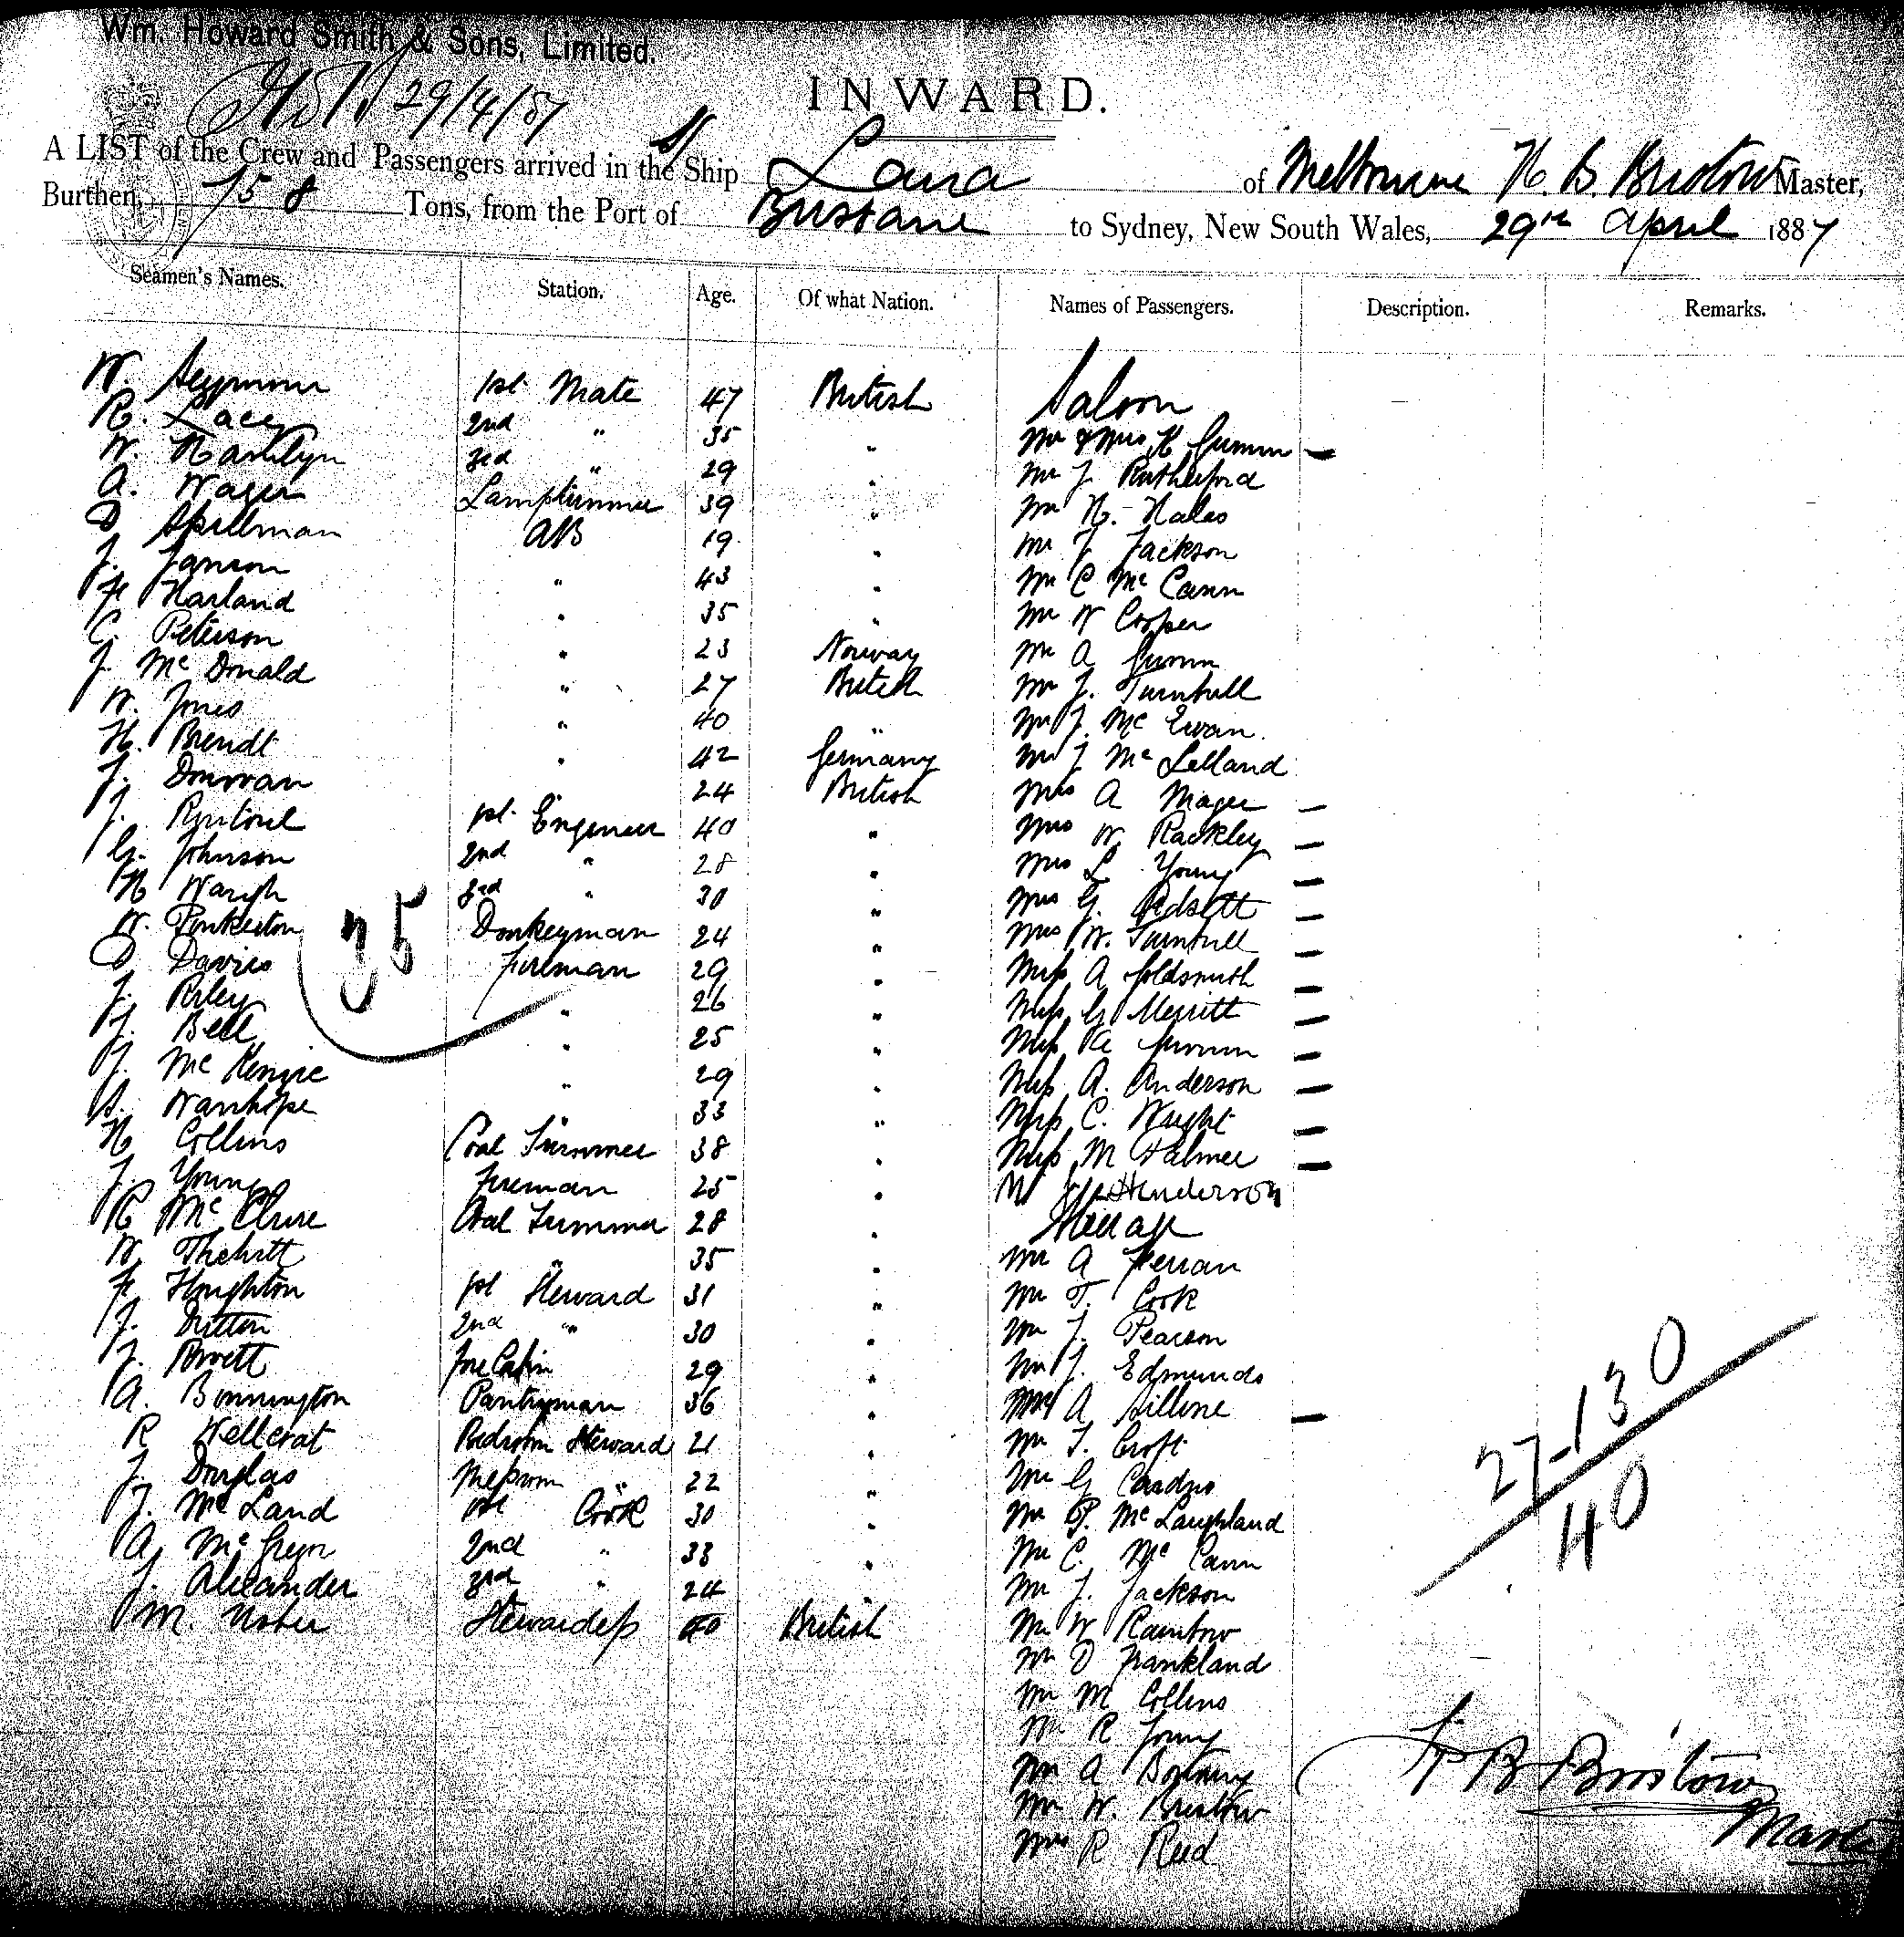 Wm. Howard Smith & Sons, Limited.
29/4/87
INWARD.
A LIST of the Crew and Passengers arrived in the S/ Ship of Melbourne H. B. Bristow Master,
Burthen, 758 Tons, from the Port of Brisbane to Sydney, New South Wales, 29th April 1887
Seamen's Names. Station. Age. Of what Nation. Names of Passengers. Description. Remarks.
W. Seymour 1st Mate 47 British Saloon
R. Lacey 2nd " 35 " Mr & Mrs H —
W. 3rd " 29 " Mr J. Rutherford
A. Wager Lamptrimmer 39 " Mr H. Hales
D. Spillman AB 19 " Mr J. Jackson
J. Janson " 43 " Mr C McCann
F. Harland " 35 " Mr W Cooper
C. Peterson " 23 Norway Mr A
J. McDonald " 27 British Mr J. Turnbull
W. Jones " 40 " Mr J. McEwan.
H. Brendt " 42 Germany Mr J McLelland
J. Donovan " 24 British Mrs A Mager —
J. Rintoul 1st Engineer 40 " Mrs W. Rackley —
G. Johnson 2nd " 28 " Mrs L Young —
H Waugh 3rd " 30 " Mrs G. —
W. Pinkerton Donkeyman 24 " Mrs W. Turnbull —
D Davies Fireman 29 " Miss A Goldsmith —
J. Riley " 26 " Miss G Merritt —
J. Bell " 25 " Miss —
J. McKenzie " 29 " Miss A. Anderson —
A. Wanhope " 33 " Miss C. Wright —
H Collins Coal Trimmer 38 " Miss M Palmer —
J. Young Fireman 25 " M Henderson
R McClure Coal Trimmer 28 "
W. " 35 " Mr A
F Houghton 1st Steward 31 " Mr T. Cook
J. Dutton 2nd " 30 " Mr J. Pearson
J. Fore Cabin 29 " Mr J. Edmunds
A. Bonnington Pantryman 36 " A —
R Bedroom Steward 21 " Mr T. Croft
J. Douglas Messroom " 22 " Mr G
J. McLand 1st Cook 30 " Mr P. McLaughland
A. 2nd " 33 " Mr C. McCann
J. Alexander 3rd " 24 Mr J. Jackson
M. Usher Stewardess 40 British Mr W Rainbow
Mr D Frankland
Mr M Collins
Mr R Young
Mr A
Mr W. Bristow
R Reed
35
27-130
40
H B Bristow
Master